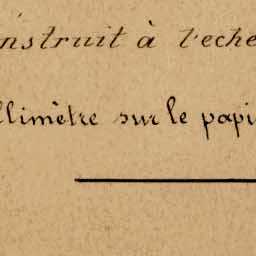 onstruit à l'eche
llimètre sur le papi